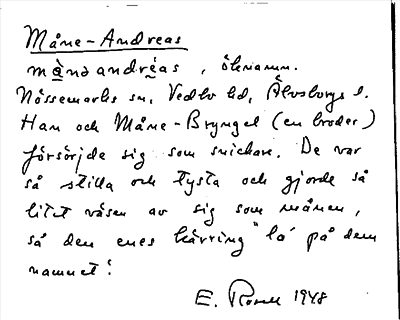 Måne-Andreas
månɘandrèas, öknamn.
Nössemarks sn, Vedbo hd, Älvsborgs l.
Han och Måne-Bryngel (en broder)
försörjde sig som snickare. De var
så stilla och tysta och gjorde så
litet väsen av sig som månen,
så den enes kärring "la" på dem
namnet!
E. Rosell 1948